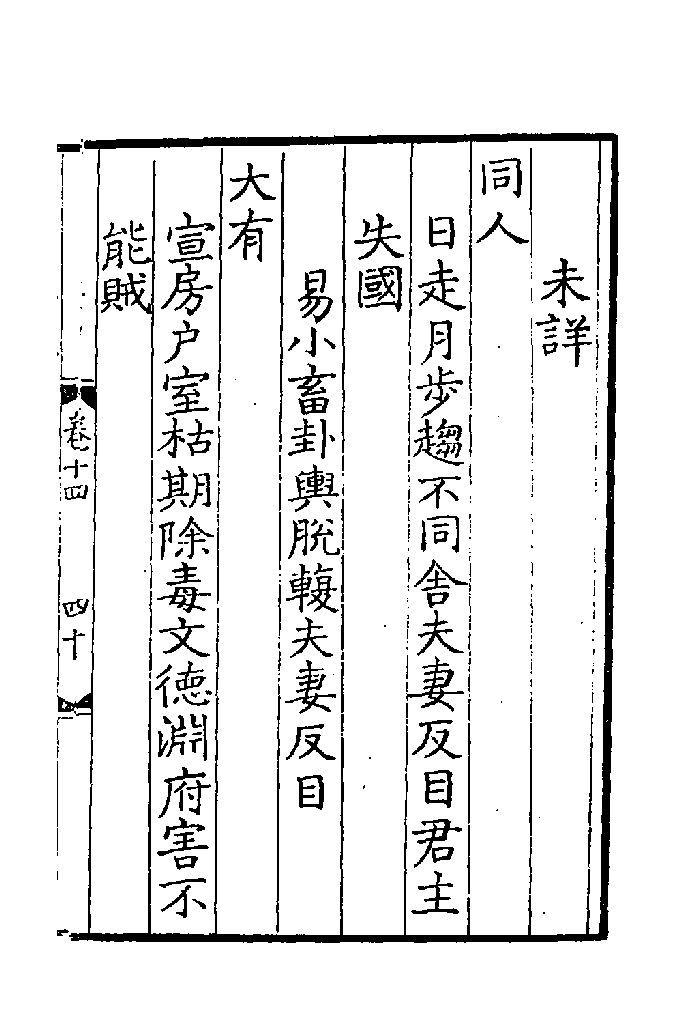 未詳
同人
日走月步趨不同舍夫妻反目君主
失國
易小畜卦輿脫輹夫妻反目
大有
宣房户室枯期除毒文德淵府害不
能賊
卷十四
四十